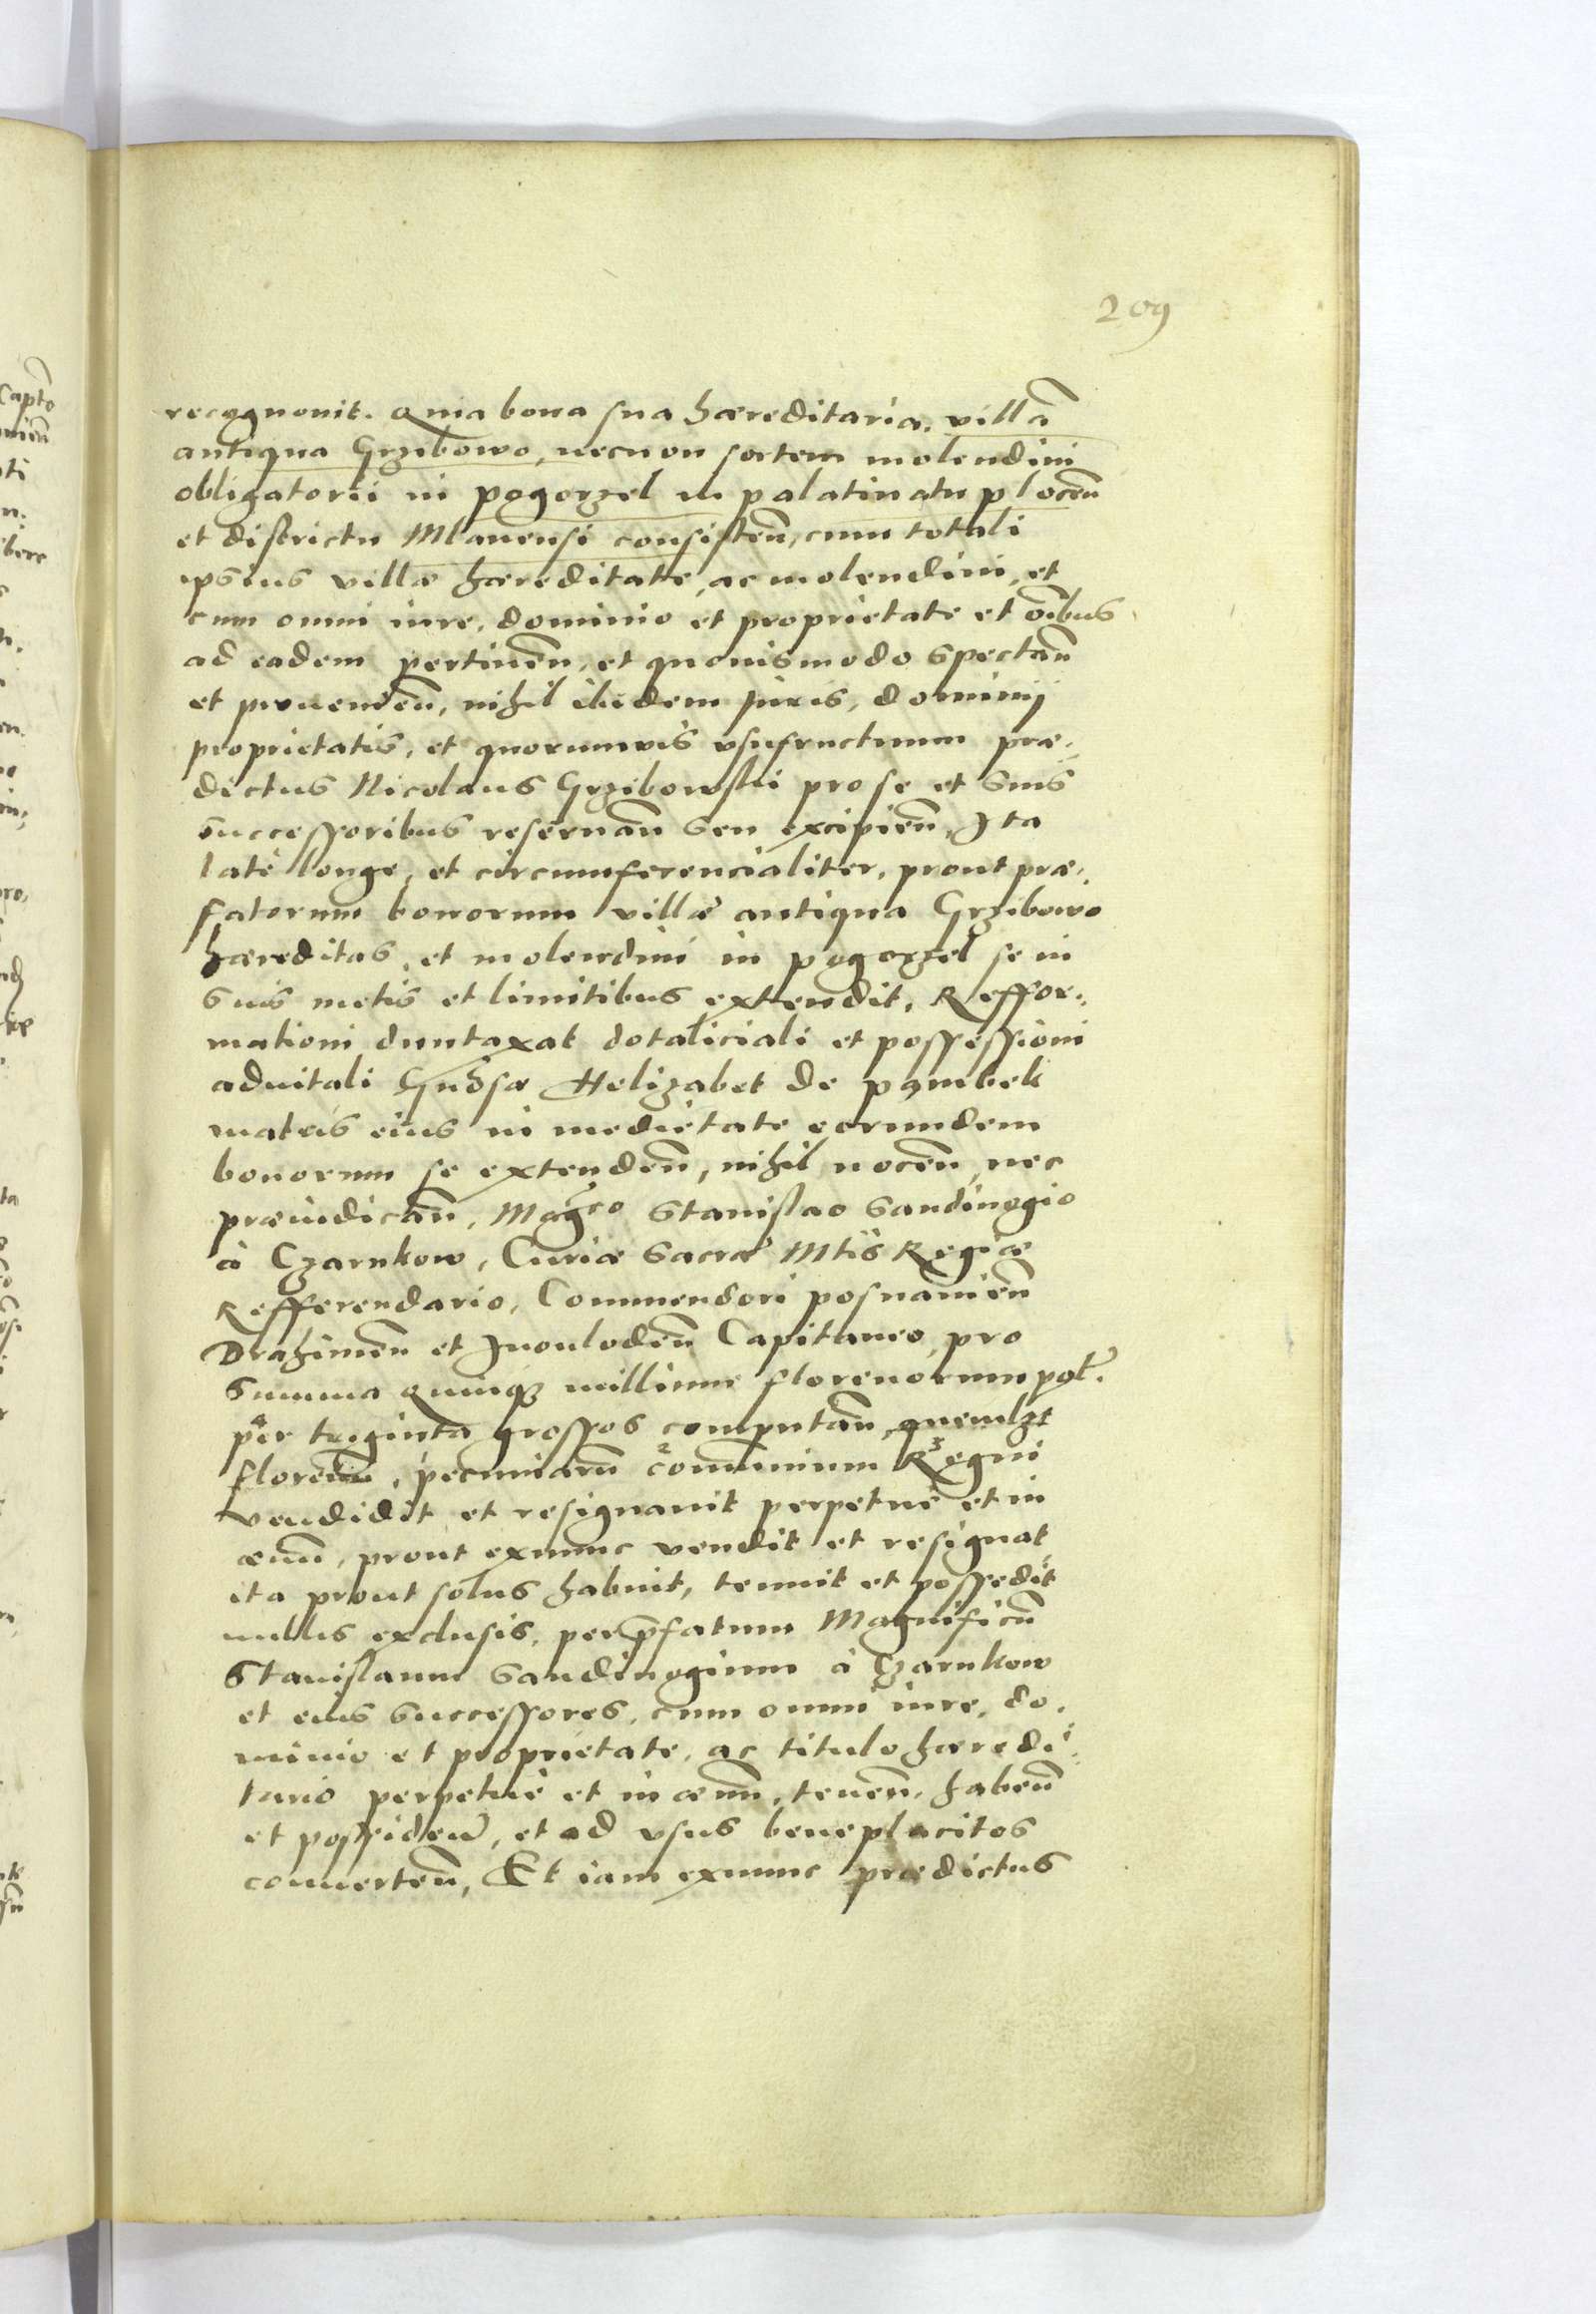 209
recognouit. Quia bona sua hæreditaria, villã
antiqua Grzibowo, necnon sortem molendini
obligatorii in pogorzel in palatinatu plocen̄
et districtu Mlauensi consisten̄, cum totali
ipsius villæ hæreditate, ac molendini, et
cum omni iure, dominio et proprietate et oībus
ad eadem pertinen̄, et quouismodo spectan̄
et prouenien̄, nihil ibidem juris, dominij
proprietatis, et quorumvis vsufructuum præ-
dictus Nicolaus Grzibowski pro se et suis
successoribus reseruan̄ seu excipien̄, Ita
latè longe, et circumferencialiter, prout præ-
fatorum bonorum villæ antiqua Grzibowo
hæreditas, et molendini in pogorzel se in
suis metis et limitibus extendit. Reffor-
mationi duntaxat dotaliciali et possessioni
aduitali Gn̄osæ Helizabet de
matris eius in medietate eorundem
bonorum se extenden̄, nihil nocen̄, nec
præiudican̄, Magco Stanislao Sandiuogio
à Czarnkow, Curiæ Sacræ Mtis Regiæ
Refferendario, Commendori posnanien̄
Drahimen̄ et Inouloden̄ Capitaneo, pro
summa quinqȝ millium florenorum pol̃.
per triginta grossos computan̄, quemlȝt
florenū, pecuniarū communium Regni
vendidit et resignauit perpetuè et in
æuū, prout exnunc vendit et resignat
ita prout solus habuit, tenuit et possedit
nullis exclusis, per p̄fatum Magnificū
Stanislaum Sandiuogium à Czarnkow
et eius successores, cum omni iure, do-
minio et proprietate, ac titulo hæredi-
tario perpetuè et in æuū, tenen̄, haben̄
et possiden̄, et ad vsus beneplacitos
conuerten̄, Et iam exnunc prædictus